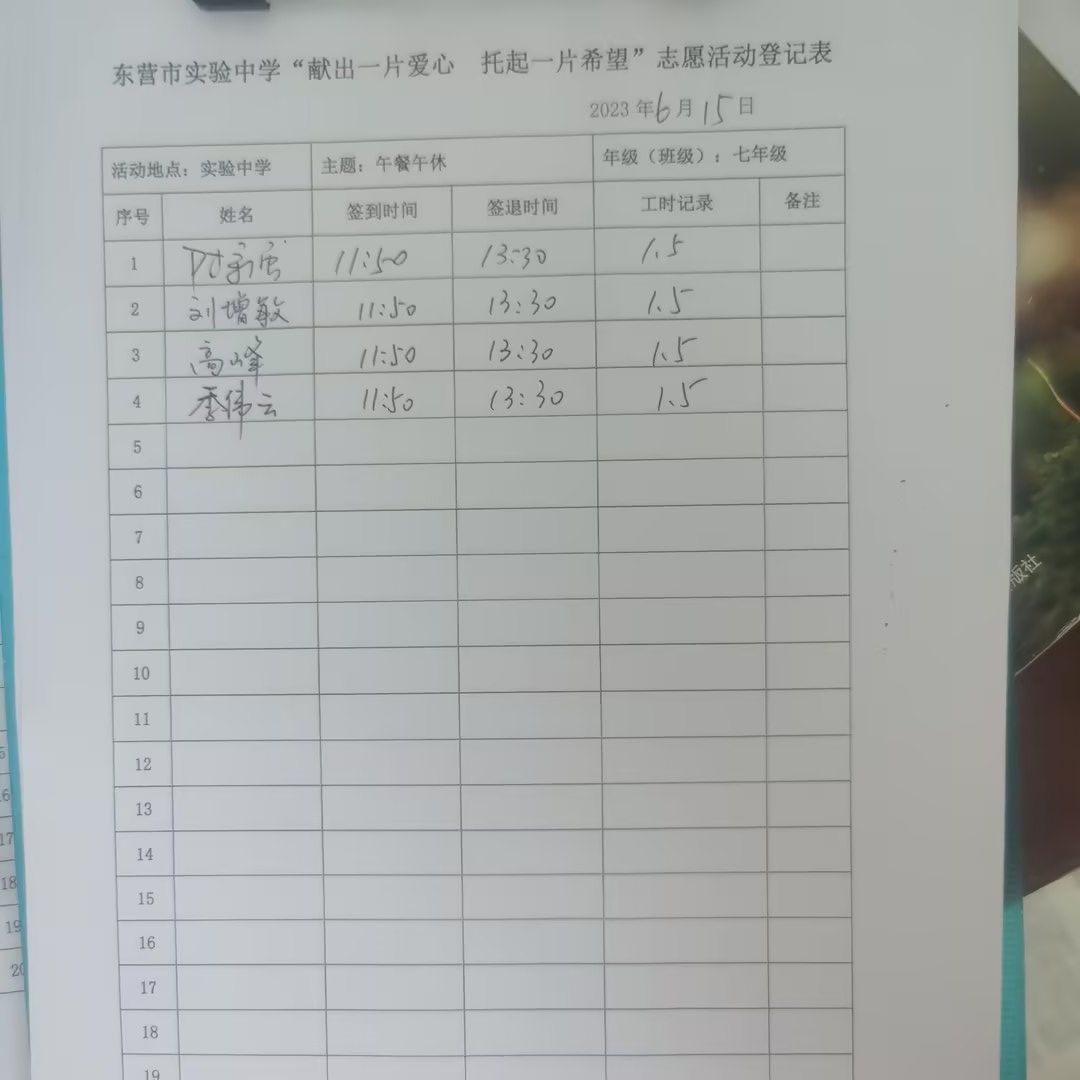 东营市实验中学“献出一片爱心 托起一片希望”志愿活动登记表
2023 年 6 月 15 日
活动地点：实验中学 主题：午餐午休 年级（班级）：七年级
序号 姓名 签到时间 签退时间 工时记录 备注
1 11:50 13:30 1.5
2 刘增敏 11:50 13:30 1.5
3 高峰 11:50 13:30 1.5
4 季伟云 11:50 13:30 1.5
5
6
7
8
9
10
11
12
13
14
15
16
17
18
19
版社
16
17
18
19
20